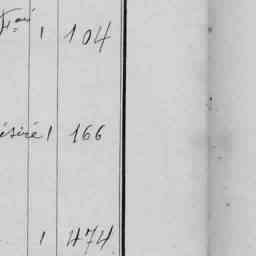 1 104
ésiré 1 166
1 474